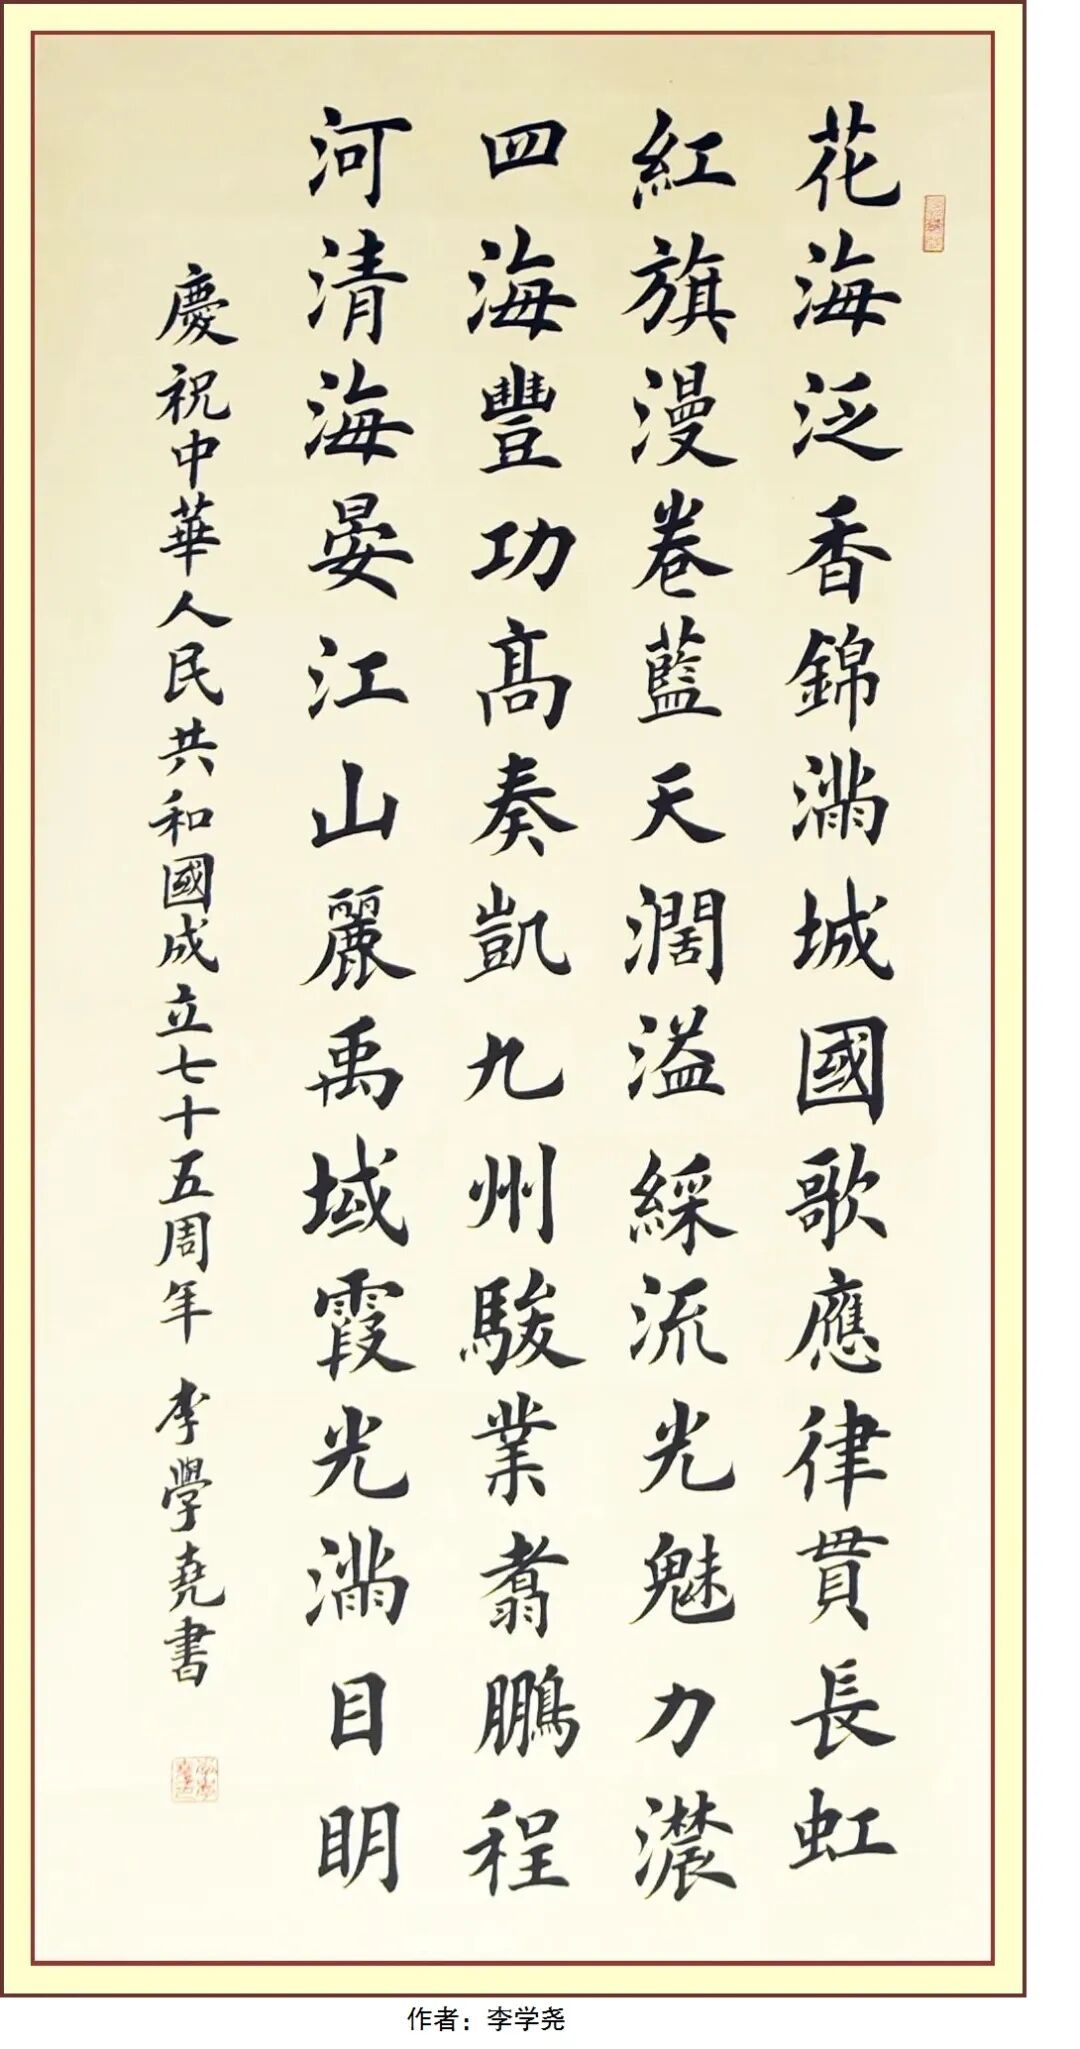 花海泛香錦滿城國歌應律貫長虹
紅旗漫卷藍天濶溢綵流光魅力濃
四海豐功高奏凱九州駿業翥鵬程
河清海晏江山麗禹域霞光滿目明
慶祝中華人民共和國成立七十五周年 李學堯書
作者：李学尧